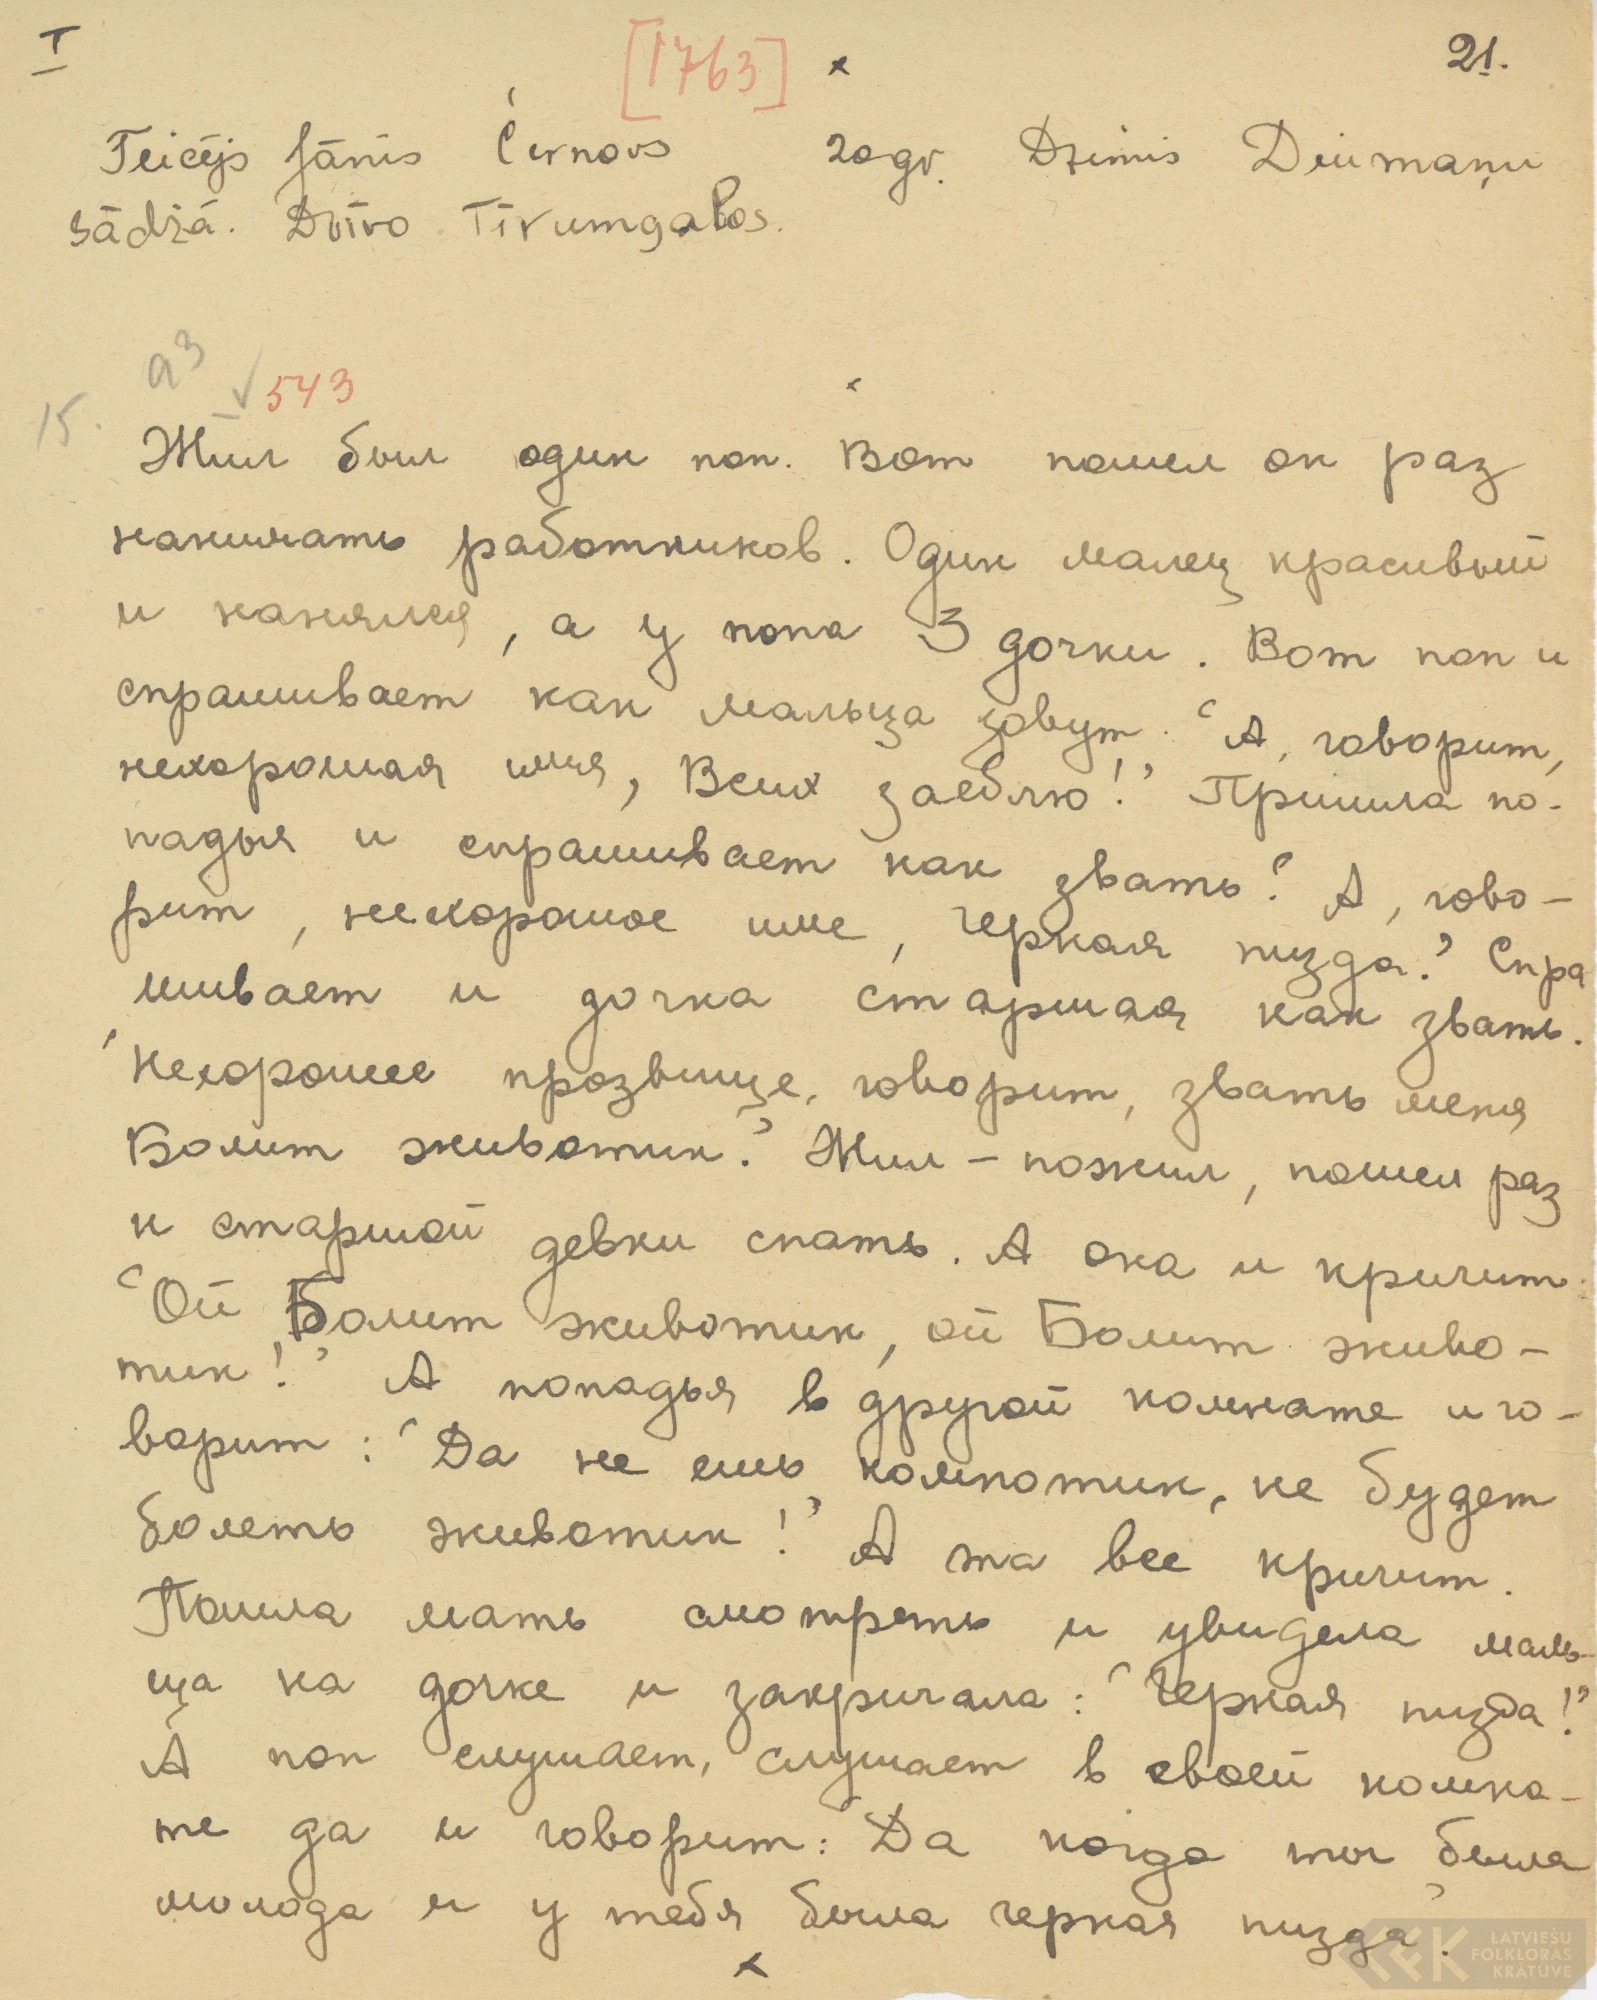 I [1763] x 21.
Teicējs Jānis Černovs 20 gv. Dzimis Deimaņu
sādžā. Dzīvo Tīrumgalos.
a3
15. √ 543
Жил был один поп. Вот пошел он раз
нанимать работников. Один малец красивый
и нанялся, а у попа 3 дочки. Вот поп и
спрашивает как мальца зовут. "А, говорит,
нехорошая имя, Всих заеблю!" Пришла по-
падья и спрашивает как звать? А, гово-
рит, нехорошое име, Черная пизда." Спра
шивает и дочка старшая как звать.
"Нехорошее прозвище, говорит, звать меня
Болит животик." Жил-пожил, пошел раз
к старшой девки спать. А она и кричит:
"Ой Болит животик, ой Болит живо-
тик!" А попадья в другой комнате и го-
ворит: "Да не ешь компотик, не будет
болеть животик!" А та все кричит.
Пошла мать смотреть и увидела маль-
ца на дочке и закричала: "Черная пизда!"
А поп слушает, слушает в своей комна-
те да и говорит: "Да когда ты была
молода и у тебя была черная пизда".
x
LATVIEŠU
FOLKLORAS
KRĀTUVE